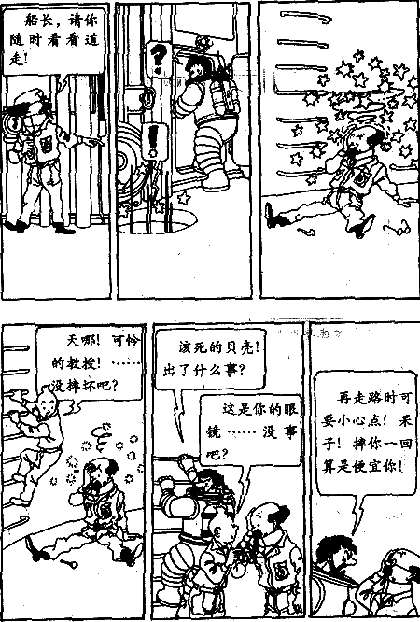 船长，请你
随时看看道
走！
？
！
天哪！可怜
的教授！……
没摔坏吧？
该死的贝壳！
出了什么事？
这是你的眼
镜……没事
吧？
再走路时可
要小心点！呆
子！摔你一回
算是便宜你！